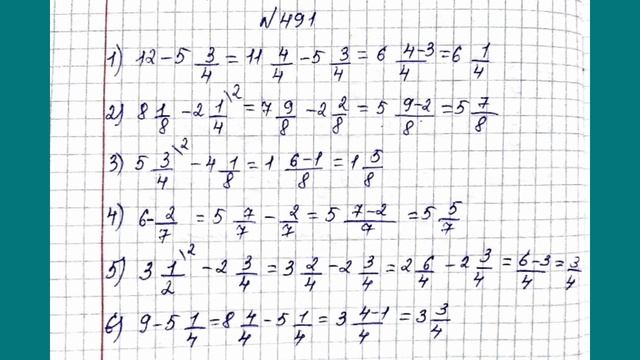 № 491
1) 12 - 5 3/4 = 11 4/4 - 5 3/4 = 6 4-3/4 = 6 1/4
2) 8 1/8 - 2 1/4 \2 = 7 9/8 - 2 2/8 = 5 9-2/8 = 5 7/8
3) 5 3/4 \2 - 4 1/8 = 1 6-1/8 = 1 5/8
4) 6 - 2/7 = 5 7/7 - 2/7 = 5 7-2/7 = 5 5/7
5) 3 1/2 \2 - 2 3/4 = 3 2/4 - 2 3/4 = 2 6/4 - 2 3/4 = 6-3/4 = 3/4
6) 9 - 5 1/4 = 8 4/4 - 5 1/4 = 3 4-1/4 = 3 3/4